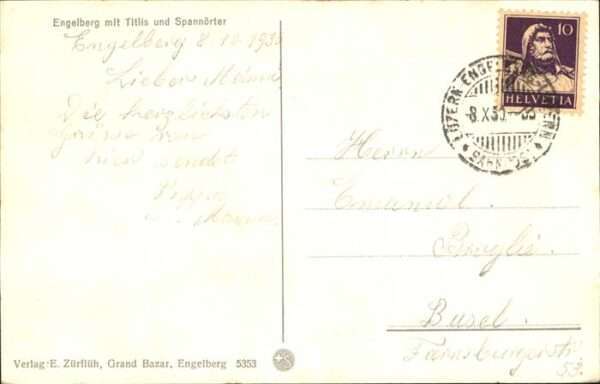 Engelberg mit Titlis und Spannörter
Engelberg 8 10 1930
Die herzlichsten
von
hier sendet
10
HELVETIA
LUZERN ENGELBERG LUZERN
8.X.30
Herrn
Emanuel
Basel.
Farnsburgerstr.
53.
Verlag E. Zürflüh, Grand Bazar, Engelberg 5353